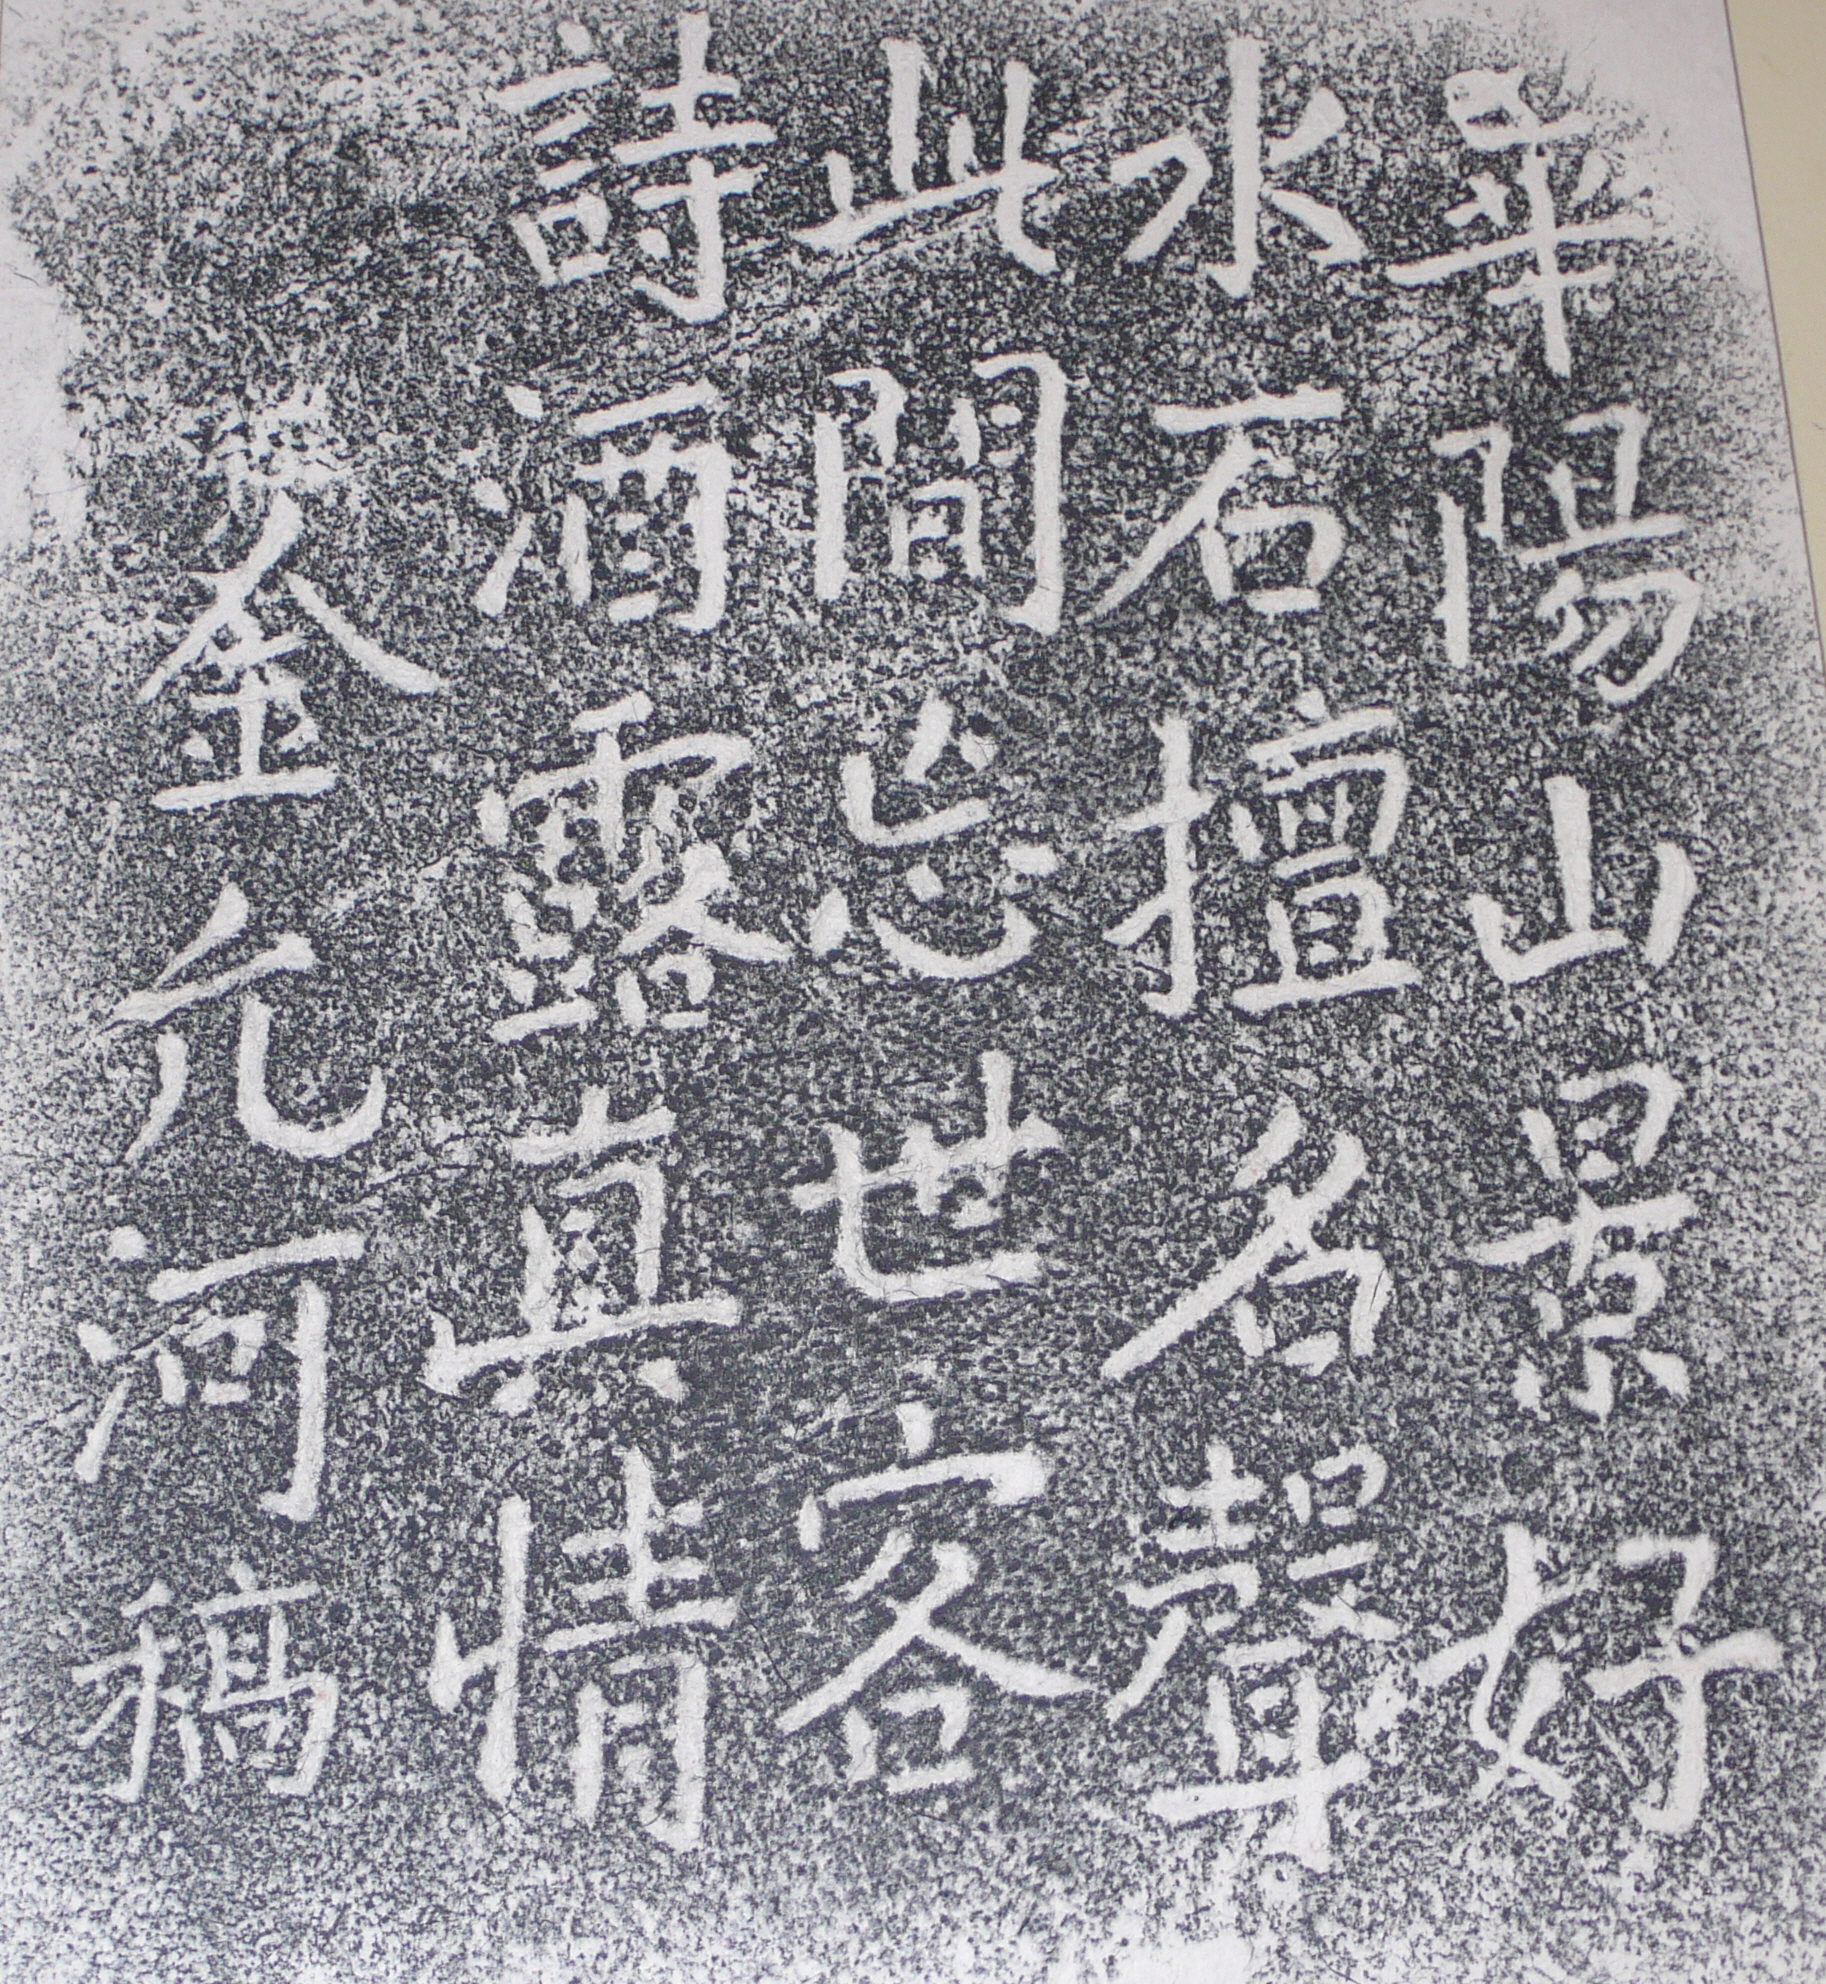 華陽山景好
水石擅名聲
此間忘世客
詩酒露真情
金元河稿